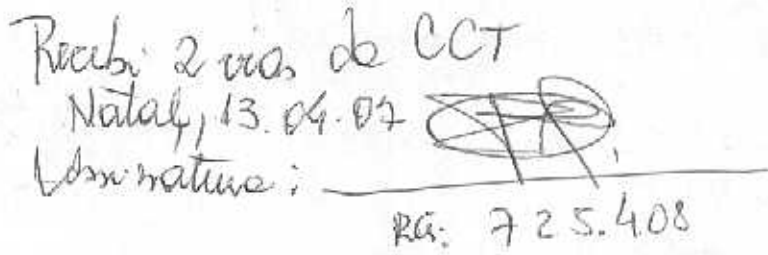 Recebi 2 vias da CCT
Natal, 13.04.07
Assinatura:
RG: 725.408